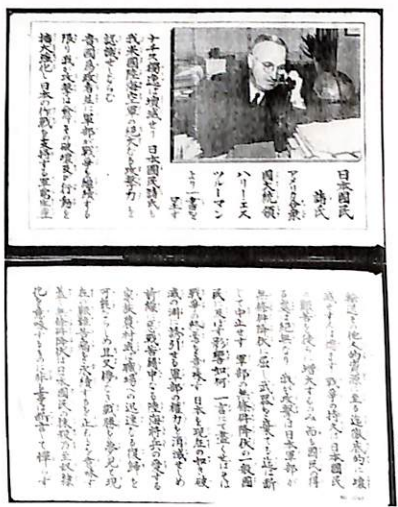 日本國民
諸氏
アメリカ合衆
國大統領
ハリーエス
ツルーマン
より一書を
呈す
ナチス獨逸は壊滅せり 日本國民諸氏も
我米國陸海空軍の絶大なる攻撃力を
認識せしならむ
貴國爲政者並に軍部が戰爭を繼續する
限り我が攻撃は愈々その破壊及び行動を
擴大強化し日本の作戰を支持する軍需生産
輸送その他人的資源に至る迄徹底的に壊
滅せずんば熄まず 戰爭の持久は日本國民
の艱苦を徒らに増大するのみ而も國民の得
る處は絶無なり 我が攻撃は日本軍部が
無條件降伏に屈し武器を棄てる迄は斷
じて中止せず 軍部の無條件降伏の一般國
民に及ぼす影響如何 一言にて盡くせばそは
戰爭の終焉を意味す 日本を現在の如き破
滅の淵に誘引せる軍部の權力を消滅せしめ
前線に惡戰苦鬪中なる陸海將兵の愛する
家族農村或は職場への迅速なる復歸を
可能ならしめ且又儚なき戰勝を夢見て現
在の艱難苦痛を永續するを止むるを意味す
蓋し無條件降伏は日本國民の抹殺乃至奴隸
化を意味するものに非ざるは斷言して憚らず